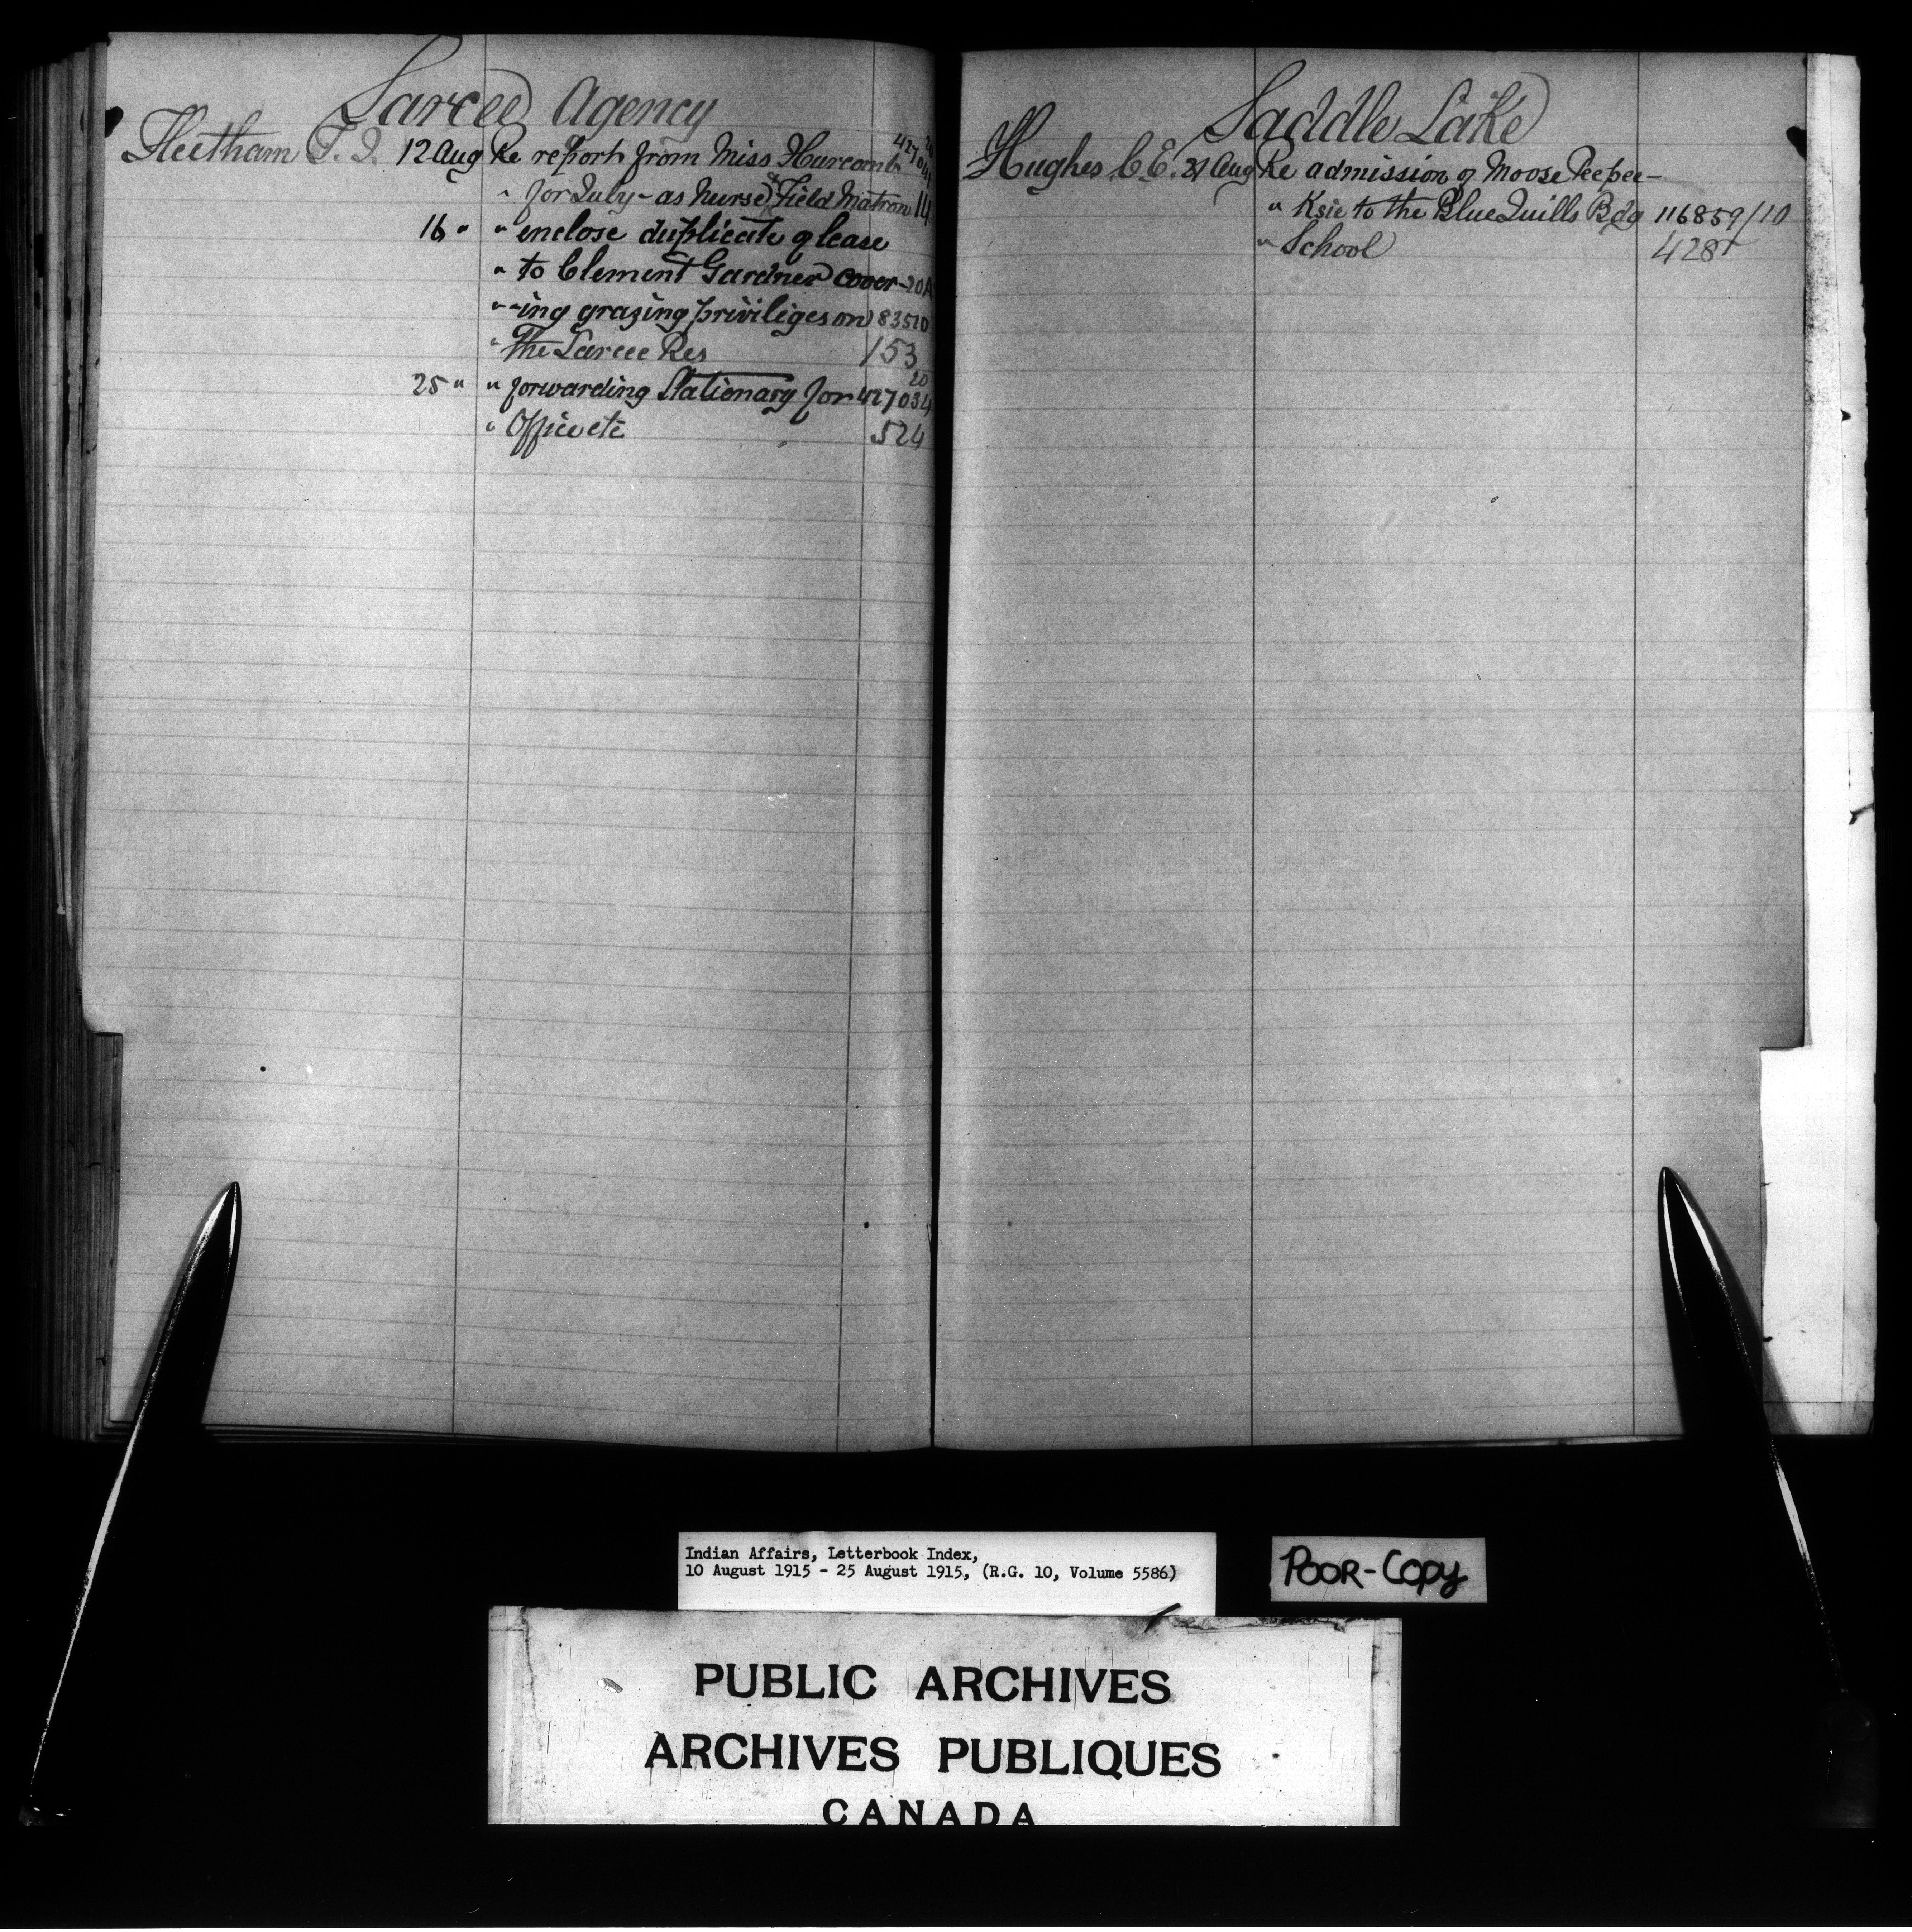 Sarcee Agency
Fleetham T. J. 12 Aug Re report from Miss Hurcomb
" for July - as Nurse & Field Matron 14
16 " " enclose duplicate of lease
" to Clement Gardner cover- 20A
" -ing grazing priviliges on 83510
" The Sarcee Res 153
20
25 " " forwarding Stationary for 427034
" Office etc 524
Saddle Lake
Hughes C. E. 21 Aug Re admission of Moose Peepee-
" Ksie to the Blue Quills Bdg 116859/10
" School 428
Indian Affairs, Letterbook Index,
10 August 1915 - 25 August 1915, (R.G. 10, Volume 5586)
POOR-COPY
PUBLIC ARCHIVES
ARCHIVES PUBLIQUES
CANADA